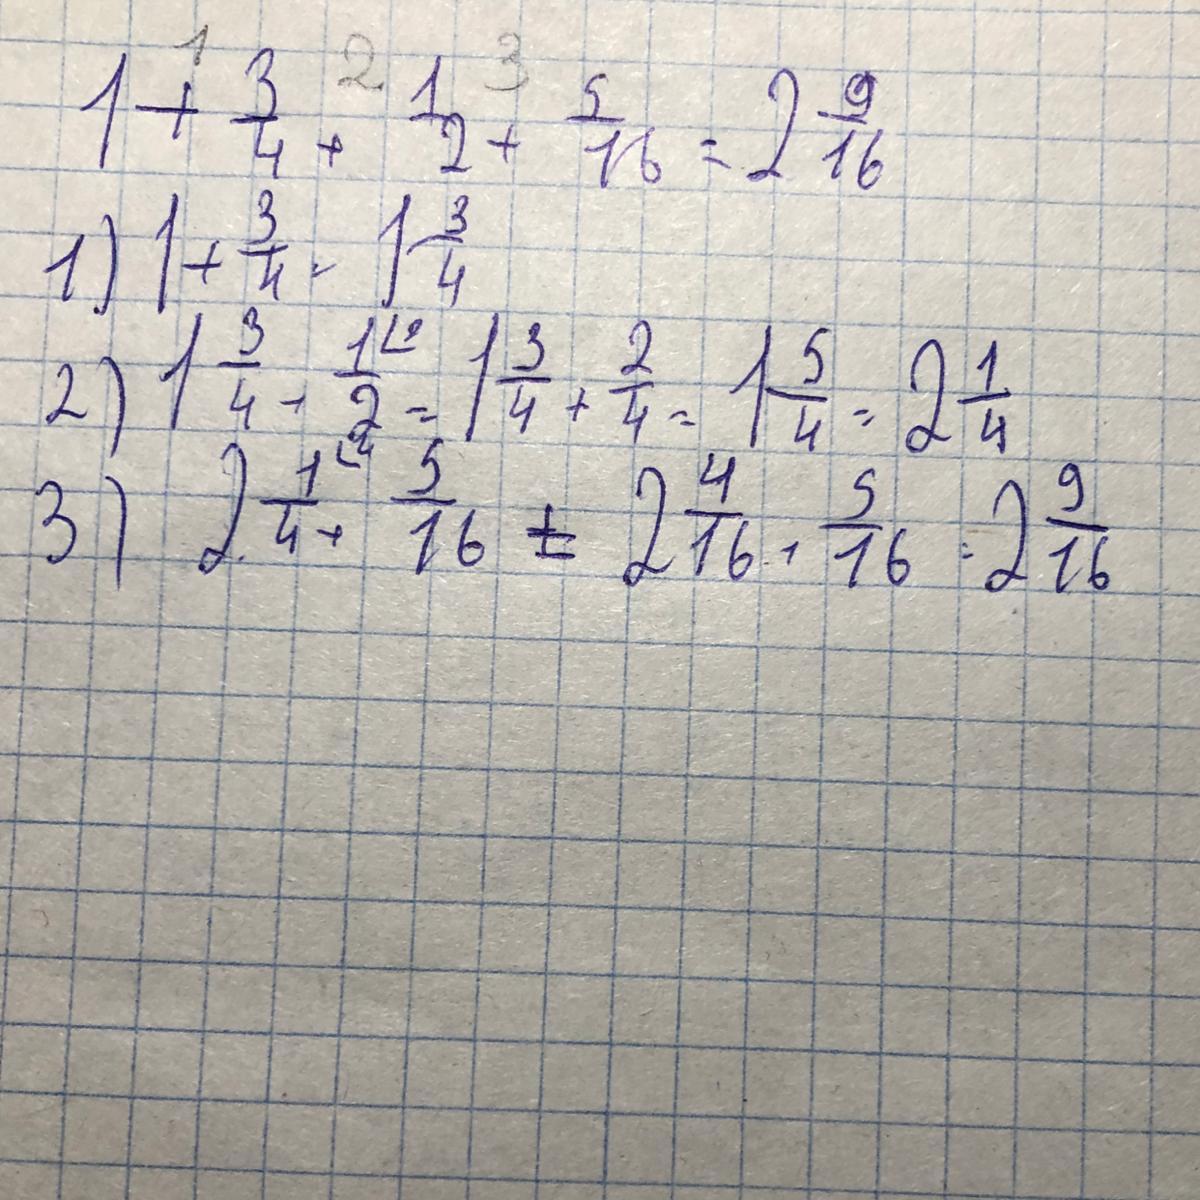 1 2 3
1 + 3/4 + 1/2 + 5/16 = 2 9/16
1) 1 + 3/4 = 1 3/4
2) 1 3/4 + 1/2 = 1 3/4 + 2/4 = 1 5/4 = 2 1/4
3) 2 1/4 + 5/16 = 2 4/16 + 5/16 = 2 9/16